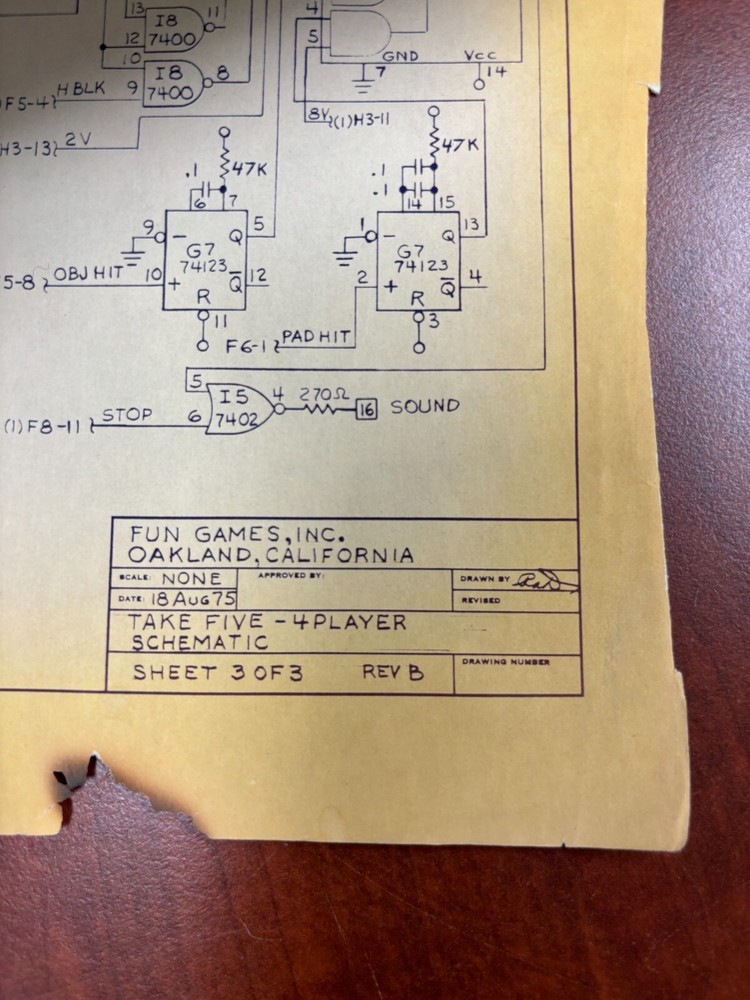 13
I8
11
12
7400
10
I8
8
HBLK
9
7400
F5-4
2V
H3-13
4
5
GND
Vcc
7
14
8V
(1)H3-11
47K
.1
6
7
9
-
Q
5
G7
74123
5-8
OBJ HIT
10
+
Q̅
12
R
11
47K
.1
.1
14
15
1
-
Q
13
G7
74123
2
+
Q̅
4
R
3
F6-1
PAD HIT
5
I5
4
270Ω
16
SOUND
(1)F8-11
STOP
6
7402
FUN GAMES, INC.
OAKLAND, CALIFORNIA
SCALE: NONE
APPROVED BY:
DRAWN BY
DATE: 18 AUG 75
REVISED
TAKE FIVE - 4 PLAYER
SCHEMATIC
SHEET 3 OF 3
REV B
DRAWING NUMBER